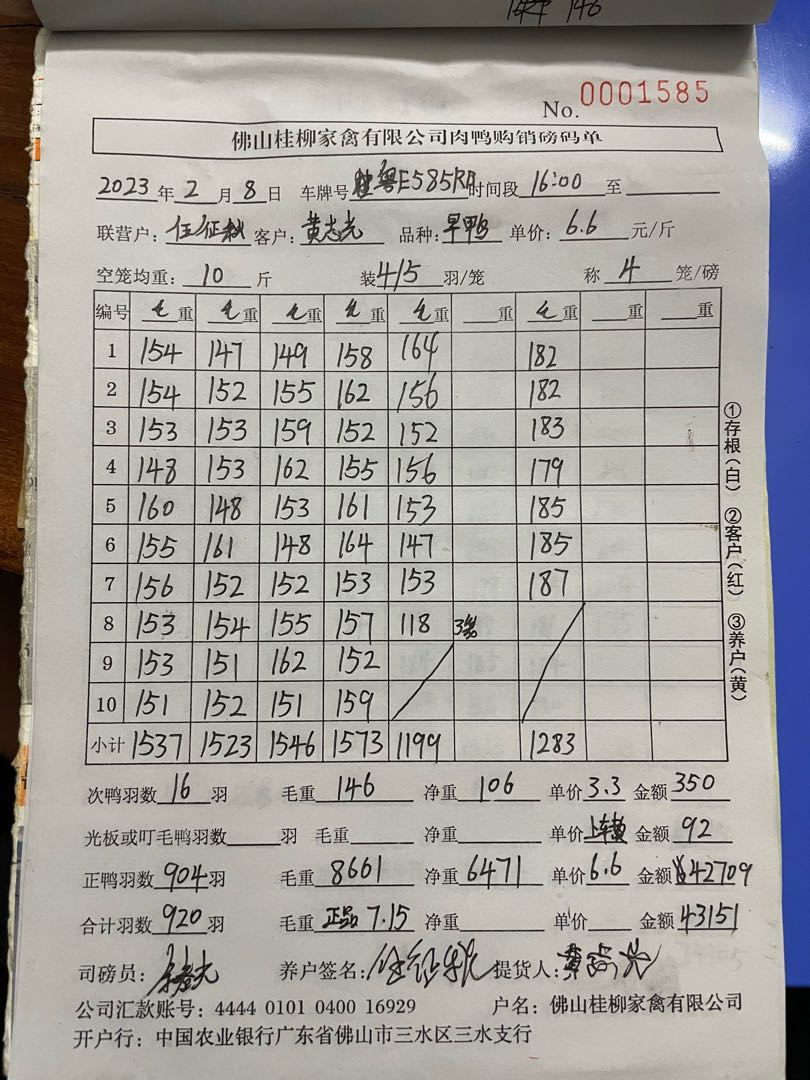 146
No. 0001585
佛山桂柳家禽有限公司肉鸭购销磅码单
2023 年 2 月 8 日 车牌号 粤E585RA 时间段 16:00 至
联营户: 伍征秋 客户: 黄志光 品种: 早鸭 单价: 6.6 元/斤
空笼均重: 10 斤 装 4/5 羽/笼 称 4 笼/磅
编号 毛重 毛重 毛重 毛重 毛重 重 毛重 重 重
1 154 147 149 158 164 182
2 154 152 155 162 156 182
3 153 153 159 152 152 183
4 148 153 162 155 156 179
5 160 148 153 161 153 185
6 155 161 148 164 147 185
7 156 152 152 153 153 187
8 153 154 155 157 118 3笼
9 153 151 162 152
10 151 152 151 159
小计 1537 1523 1546 1573 1199 1283
次鸭羽数 16 羽 毛重 146 净重 106 单价 3.3 金额 350
光板或叮毛鸭羽数 羽 毛重 净重 单价 上车费 金额 92
正鸭羽数 904 羽 毛重 8661 净重 6471 单价 6.6 金额 ¥42709
合计羽数 920 羽 毛重 正品 7.15 净重 单价 金额 43151
司磅员: 养户签名: 伍征秋 提货人: 黄志光
公司汇款账号: 4444 0101 0400 16929 户名: 佛山桂柳家禽有限公司
开户行: 中国农业银行广东省佛山市三水区三水支行
①存根(白) ②客户(红) ③养户(黄)